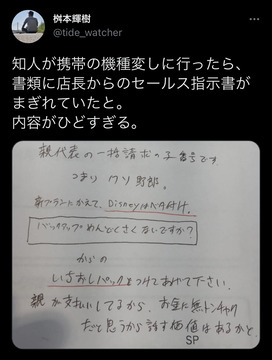 桝本輝樹
@tide_watcher
知人が携帯の機種変しに行ったら、
書類に店長からのセールス指示書が
まぎれていたと。
内容がひどすぎる。
親代表の一括請求の子番号です
つまり クソ野郎。
新プランにかえて、Disneyはベタ付け。
バックアップめんどくさくないですか?
からの
いきおしパックをつけてあげて下さい。
親が支払いしてるから、お金に無トンチャク
だと思うから話す価値はあるかと
SP